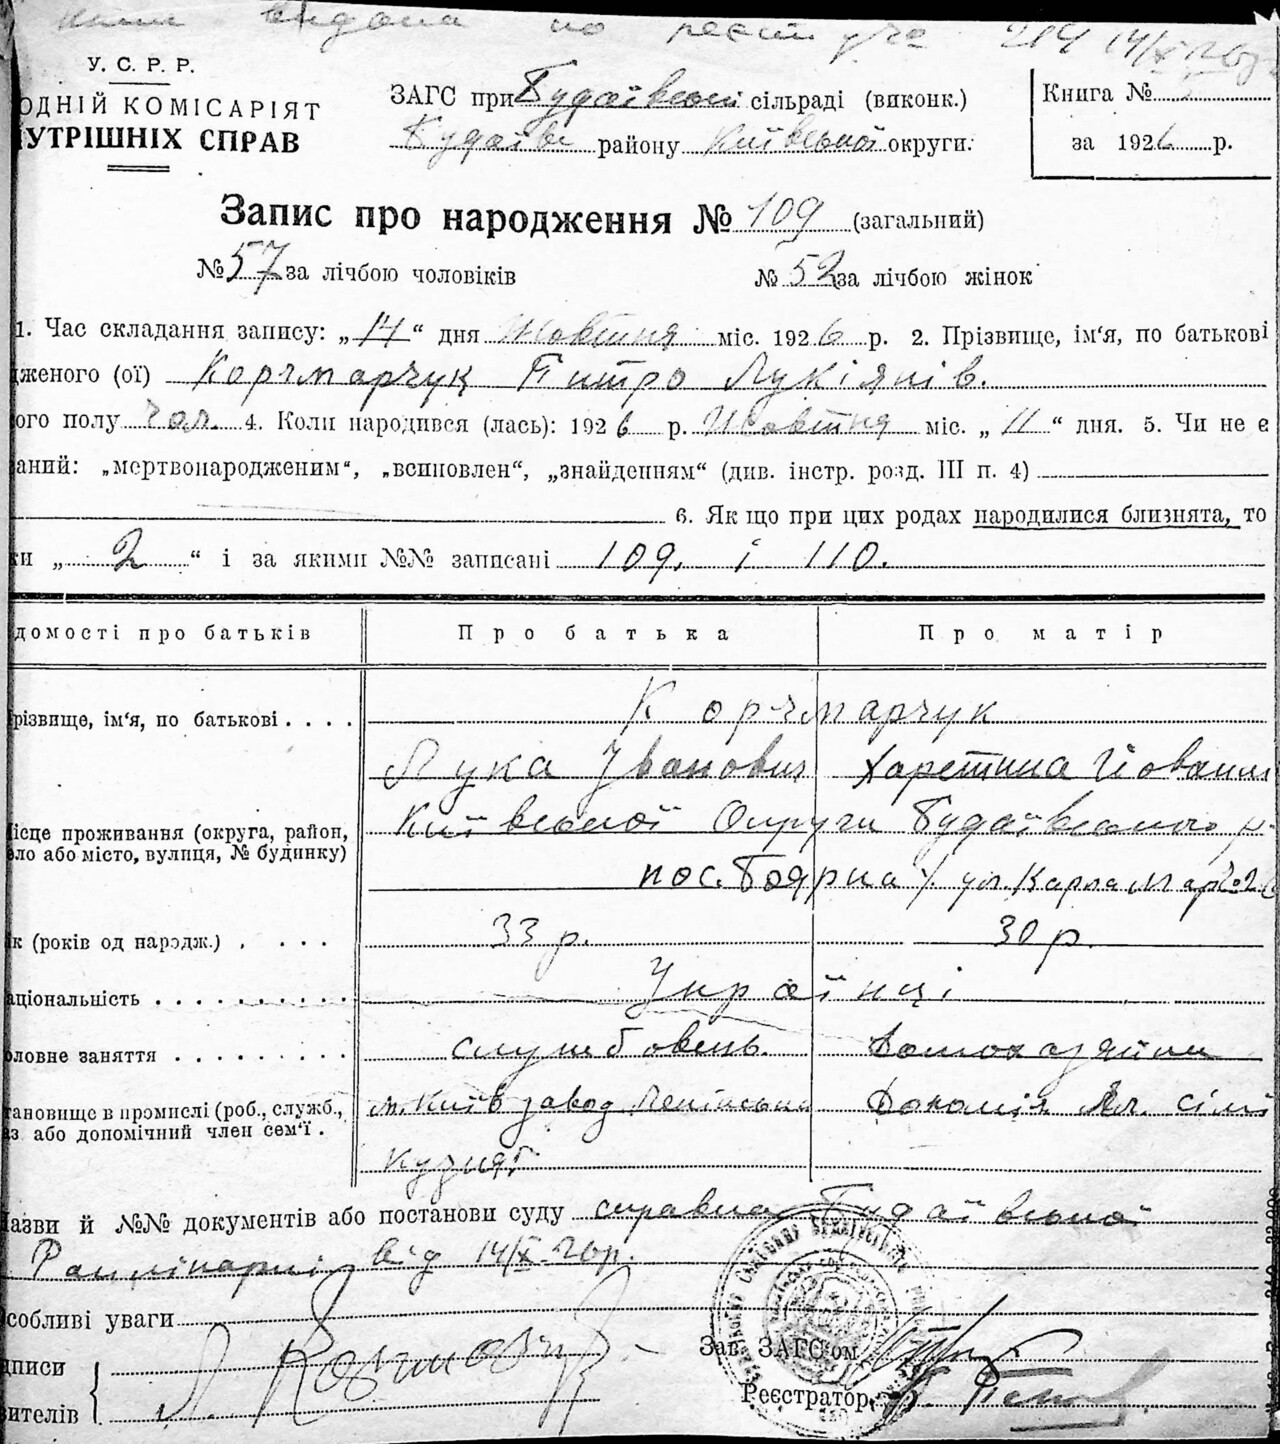 видана по реєстр 14/X 26 р
У. С. Р. Р.
ОДНІЙ КОМІСАРІЯТ
УТРІШНІХ СПРАВ
ЗАГС при Будаївської сільраді (виконк.)
Будаївс району Київської округи.
Книга №
за 1926 р.
Запис про народження № 109 (загальний)
№ 57 за лічбою чоловіків № 52 за лічбою жінок
1. Час складання запису: „14“ дня Жовтня міс. 1926 р. 2. Прізвище, ім‘я, по батькові
дженого (ої) Корчмарчук Питро Лукіянів.
ого полу чол. 4. Коли народився (лась): 1926 р. Жовтня міс. „11“ дня. 5. Чи не є
аний: „мертвонародженим“, „всиновлен“, „знайденням“ (див. інстр. розд. III п. 4)
6. Як що при цих родах народилися близнята, то
ки „2“ і за якими №№ записані 109. і 110.
домості про батьків Про батька Про матір
різвище, ім‘я, по батькові . . . . Корчмарчук
Лука Іванович Харетина Йованов
ісце проживання (округа, район, Київської Округи Будаївського р
ло або місто, вулиця, № будинку)
пос. Боярка ул. Карла Мар № 2
ік (років од народж.) . . . . 33 р. 30 р.
аціональність . . . . . . . . . . Українці
оловне заняття . . . . . . . . . службовець. Домохазяйка
тановище в промислі (роб., служб., м. Київ завод Ленінська Допоміж чл. сімї
аз або допомічний член сем‘ї . Кузня
Назви й №№ документів або постанови суду справка Будаївської
від 14/X-26 р.
Особливі уваги
дписи
Зав. ЗАГС‘ом
вителів
Реєстратор